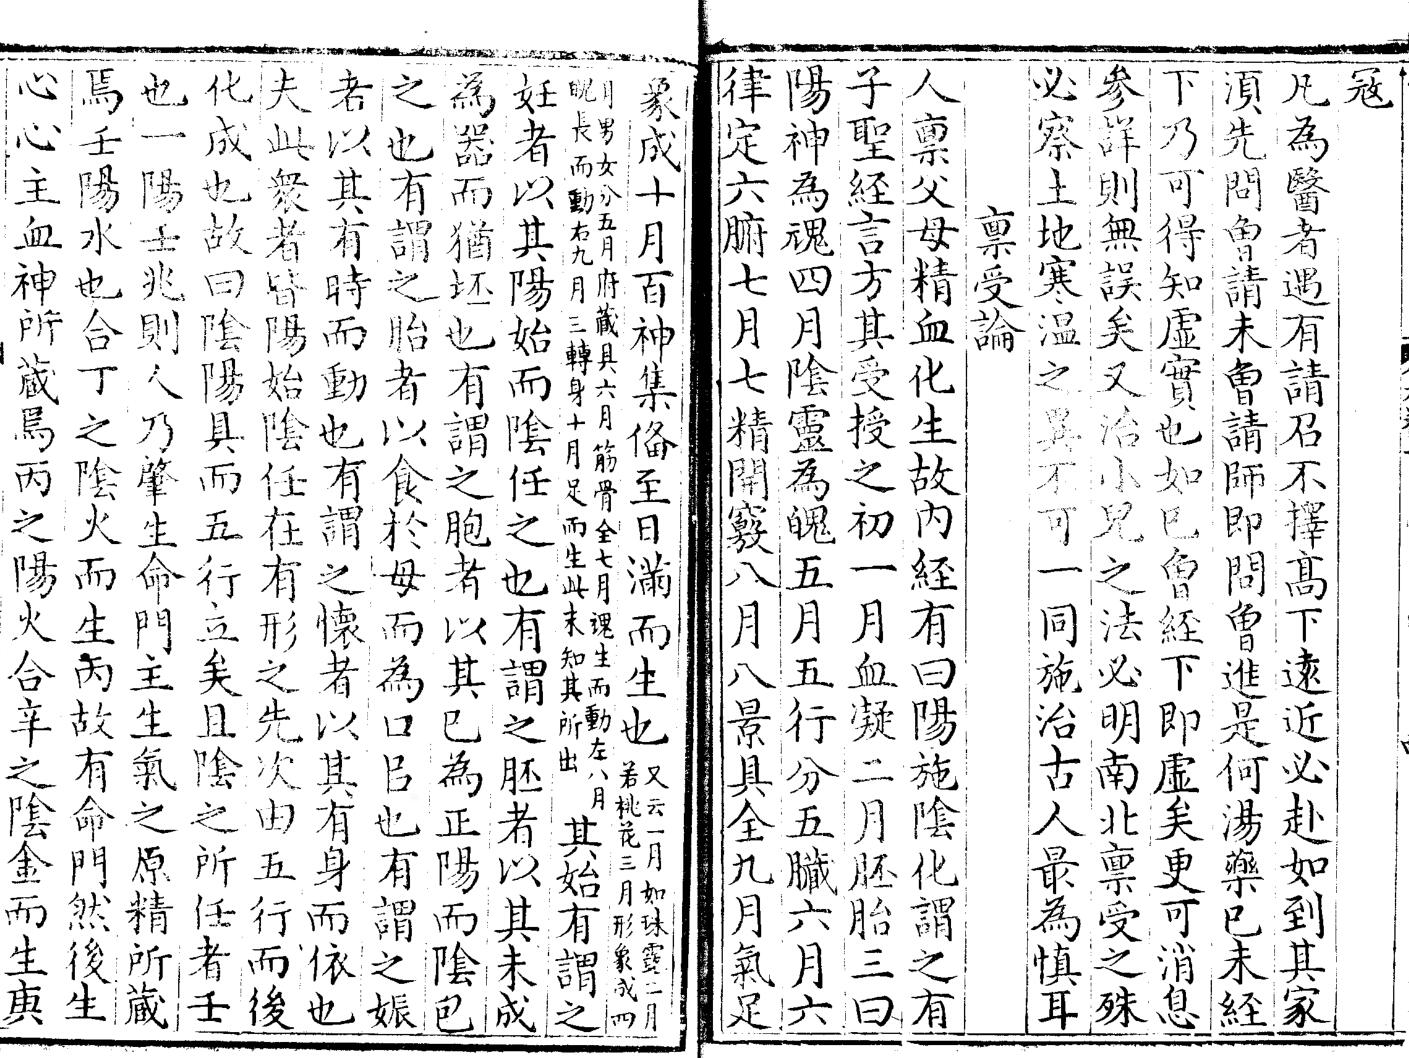 冦
凡為醫者遇有請召不擇髙下遠近必赴如到其家
湏先問曾請未曾請師即問曾進是何湯藥已未經
下乃可得知虛實也如已曾經下即虛矣更可消息
參詳則無誤矣又治小兒之法必明南北禀受之殊
必察土地寒温之異不可一同施治古人最為慎耳
禀受論
人禀父母精血化生故内経有曰陽施陰化謂之有
子聖経言方其受授之初一月血凝二月胚胎三曰
陽神為魂四月陰靈為魄五月五行分五臓六月六
律定六腑七月七精開竅八月八景具全九月氣足
象成十月百神集俻至日滿而生也
又云一月如珠露二月
若桃花三月形象成四
月男女分五月府蔵具六月筋骨全七月魂生而動左八月
魄長而動右九月三轉身十月足而生此未知其所出
其始有謂之
妊者以其陽始而陰任之也有謂之胚者以其未成
為器而猶坯也有謂之胞者以其已為正陽而陰包
之也有謂之胎者以食於母而為口㠯也有謂之娠
者以其有時而動也有謂之懷者以其有身而依也
夫此衆者皆陽始陰任在有形之先次由五行而後
化成也故曰陰陽具而五行立矣且陰之所任者壬
也一陽壬兆則人乃肇生命門主生氣之原精所蔵
焉壬陽水也合丁之陰火而生丙故有命門然後生
心心主血神所蔵焉丙之陽火合辛之陰金而生庚